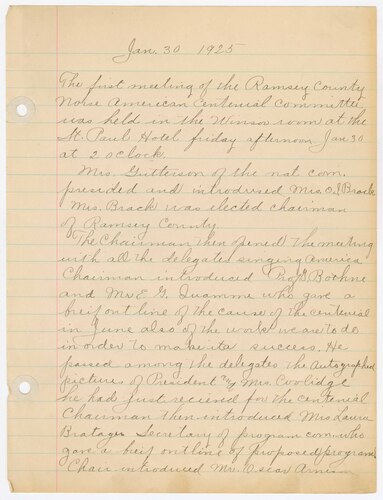 Jan. 30 1925
The first meeting of the Ramsey County
Norse American Centenial Committee
was held in the Winsor room at the
St. Paul Hotel friday afternoon Jan 30
at 2 oclock.
Mrs. Gutterson of the nat com.
presided and introdused Mrs. O J Brack
Mrs. Brack was elected chairman
of Ramsey County.
The Chairman then opened the meeting
with all the delegates singing America
Chairman introduced Prof Bothne
and Mr E. G. Quamme who gave a
breif out line of the cause of the centenial
in June also of the work we are to do
in order to make its success. He
passed among the delegates the Autographed
pictures of President & Mrs. Coolidge
he had just recieved for the centenial
Chairman then introduced Mrs Laura
Bratager Secretary of program com. who
gave a breif out line of proposed program
Chair introduced Mr. Oscar Arneson